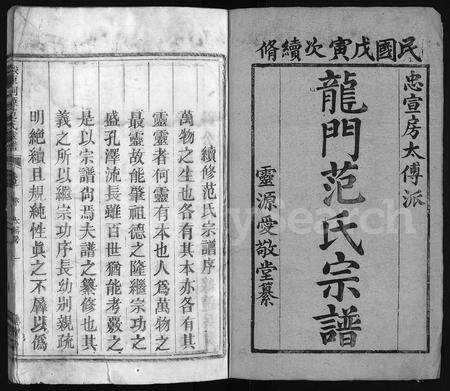 民國戊寅次續脩
忠宣房太傅派
龍門范氏宗譜
靈源愛敬堂纂
續修范氏宗譜序
萬物之生也各有其本亦各有其
靈靈者何靈有本也人為萬物之
最靈故能肇祖德之隆繼宗功之
盛孔澤流長雖百世猶能考覈之
是以宗譜尚焉夫譜之纂修也其
義之所以繼宗功序長幼別親疏
明絶續且規純性眞之不孱以僞